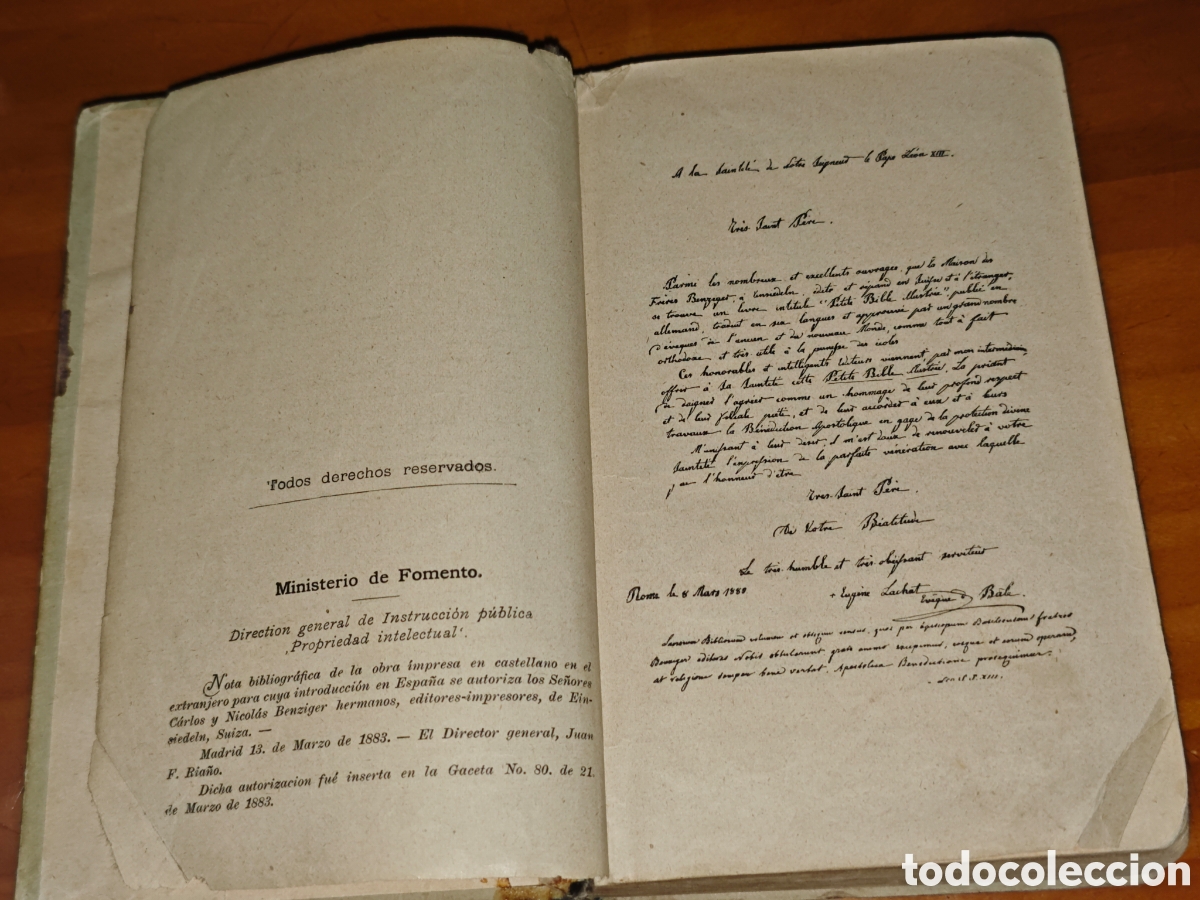 Todos derechos reservados.
Ministerio de Fomento.
Direction general de Instrucción pública
Propriedad intelectual.
Nota bibliográfica de la obra impresa en castellano en el
extranjero para cuya introducción en España se autoriza los Señores
Cárlos y Nicolás Benziger hermanos, editores-impresores, de Ein-
siedeln, Suiza. —
Madrid 13. de Marzo de 1883. — El Director general, Juan
F. Riaño.
Dicha autorizacion fué inserta en la Gaceta No. 80. de 21.
de Marzo de 1883.
A la Sainteté de Notre Seigneur le Pape Léon XIII.
Très Saint Père.
Parmi les nombreux et excellents ouvrages, que la Maison des
Frères Benziger, à Einsiedeln, édite et répand en Suisse et à l'étranger,
se trouve un livre intitulé "Petite Bible illustrée", publié en
allemand, traduit en six langues et approuvé par un grand nombre
d'évêques de l'ancien et du nouveau Monde, comme tout à fait
orthodoxe et très utile à la jeunesse des écoles
Ces honorables et intelligents éditeurs viennent, par mon intermédiaire,
offrir à Sa Sainteté cette Petite Bible illustrée, La priant
de daigner l'agréer comme un hommage de leur profond respect
et de leur filiale piété, et de leur accorder à eux et à leurs
travaux la Bénédiction Apostolique en gage de la protection divine
M'unissant à leur désir, il m'est doux de renouveler à votre
Sainteté l'expression de la parfaite vénération avec laquelle
j'ai l'honneur d'être
Très-Saint Père
De Votre Béatitude
Le très humble et très obéissant serviteur
Rome le 8 Mars 1880
+ Eugène Lachat
Evêque de Bâle.
Benziger editores Nobis obtulerunt grato animo excepimus,
et religione semper bene vertat, Apostolica Benedictione prosequimur.
Leo P. P. XIII.
todocoleccion